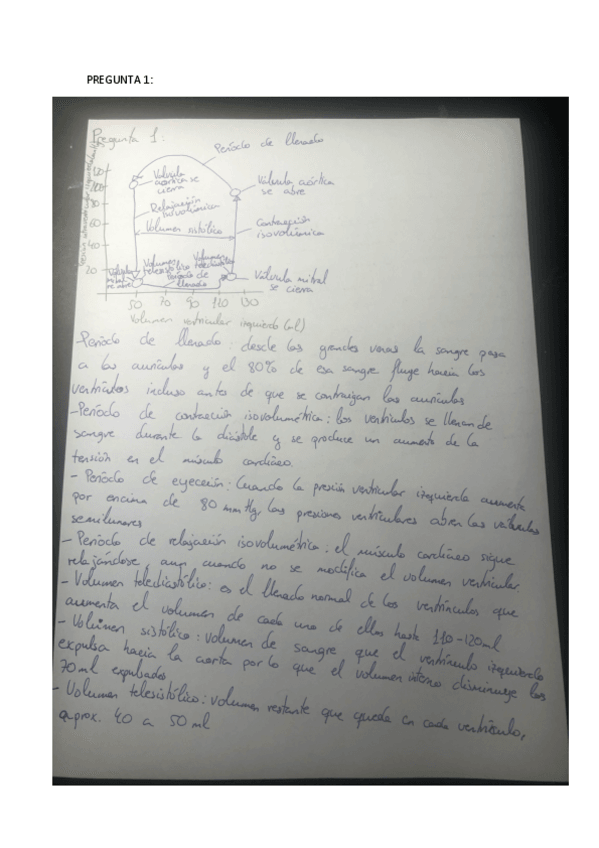 PREGUNTA 1:
Pregunta 1:
Período de llenado
Válvula
aórtica se
cierra
Válvula aórtica
se abre
Relajación
isovolumica
Volumen sistólico
Contracción
isovolúmica
Volumen
telesistólico
Período de
llenado
Válvula mitral
se cierra
20
40
60
50 70 90 120 130
Volumen ventricular izquierdo (ml)
Período de llenado: desde las grandes venas la sangre pasa
a las aurículas y el 80% de esa sangre fluye hacia los
ventrículos incluso antes de que se contraigan las aurículas
-Período de contracción isovolumétrica: los ventrículos se llenan de
sangre durante la diástole y se produce un aumento de la
tensión en el músculo cardíaco.
- Período de eyección: Cuando la presión ventricular izquierda aumenta
por encima de 80 mmHg, las presiones ventriculares abren las válvulas
semilunares
- Período de relajación isovolumétrica: el músculo cardíaco sigue
relajándose aun cuando no se modifica el volumen ventricular
- Volumen telediastólico: es el llenado normal de los ventrículos que
aumenta el volumen de cada uno de ellos hasta 110-120ml
- Volumen sistólico: volumen de sangre que el ventrículo izquierdo
expulsa hacia la aorta por lo que el volumen interno disminuye los
70ml expulsados
- Volumen telesistólico: volumen restante que queda en cada ventrículo,
aprox. 40 a 50 ml